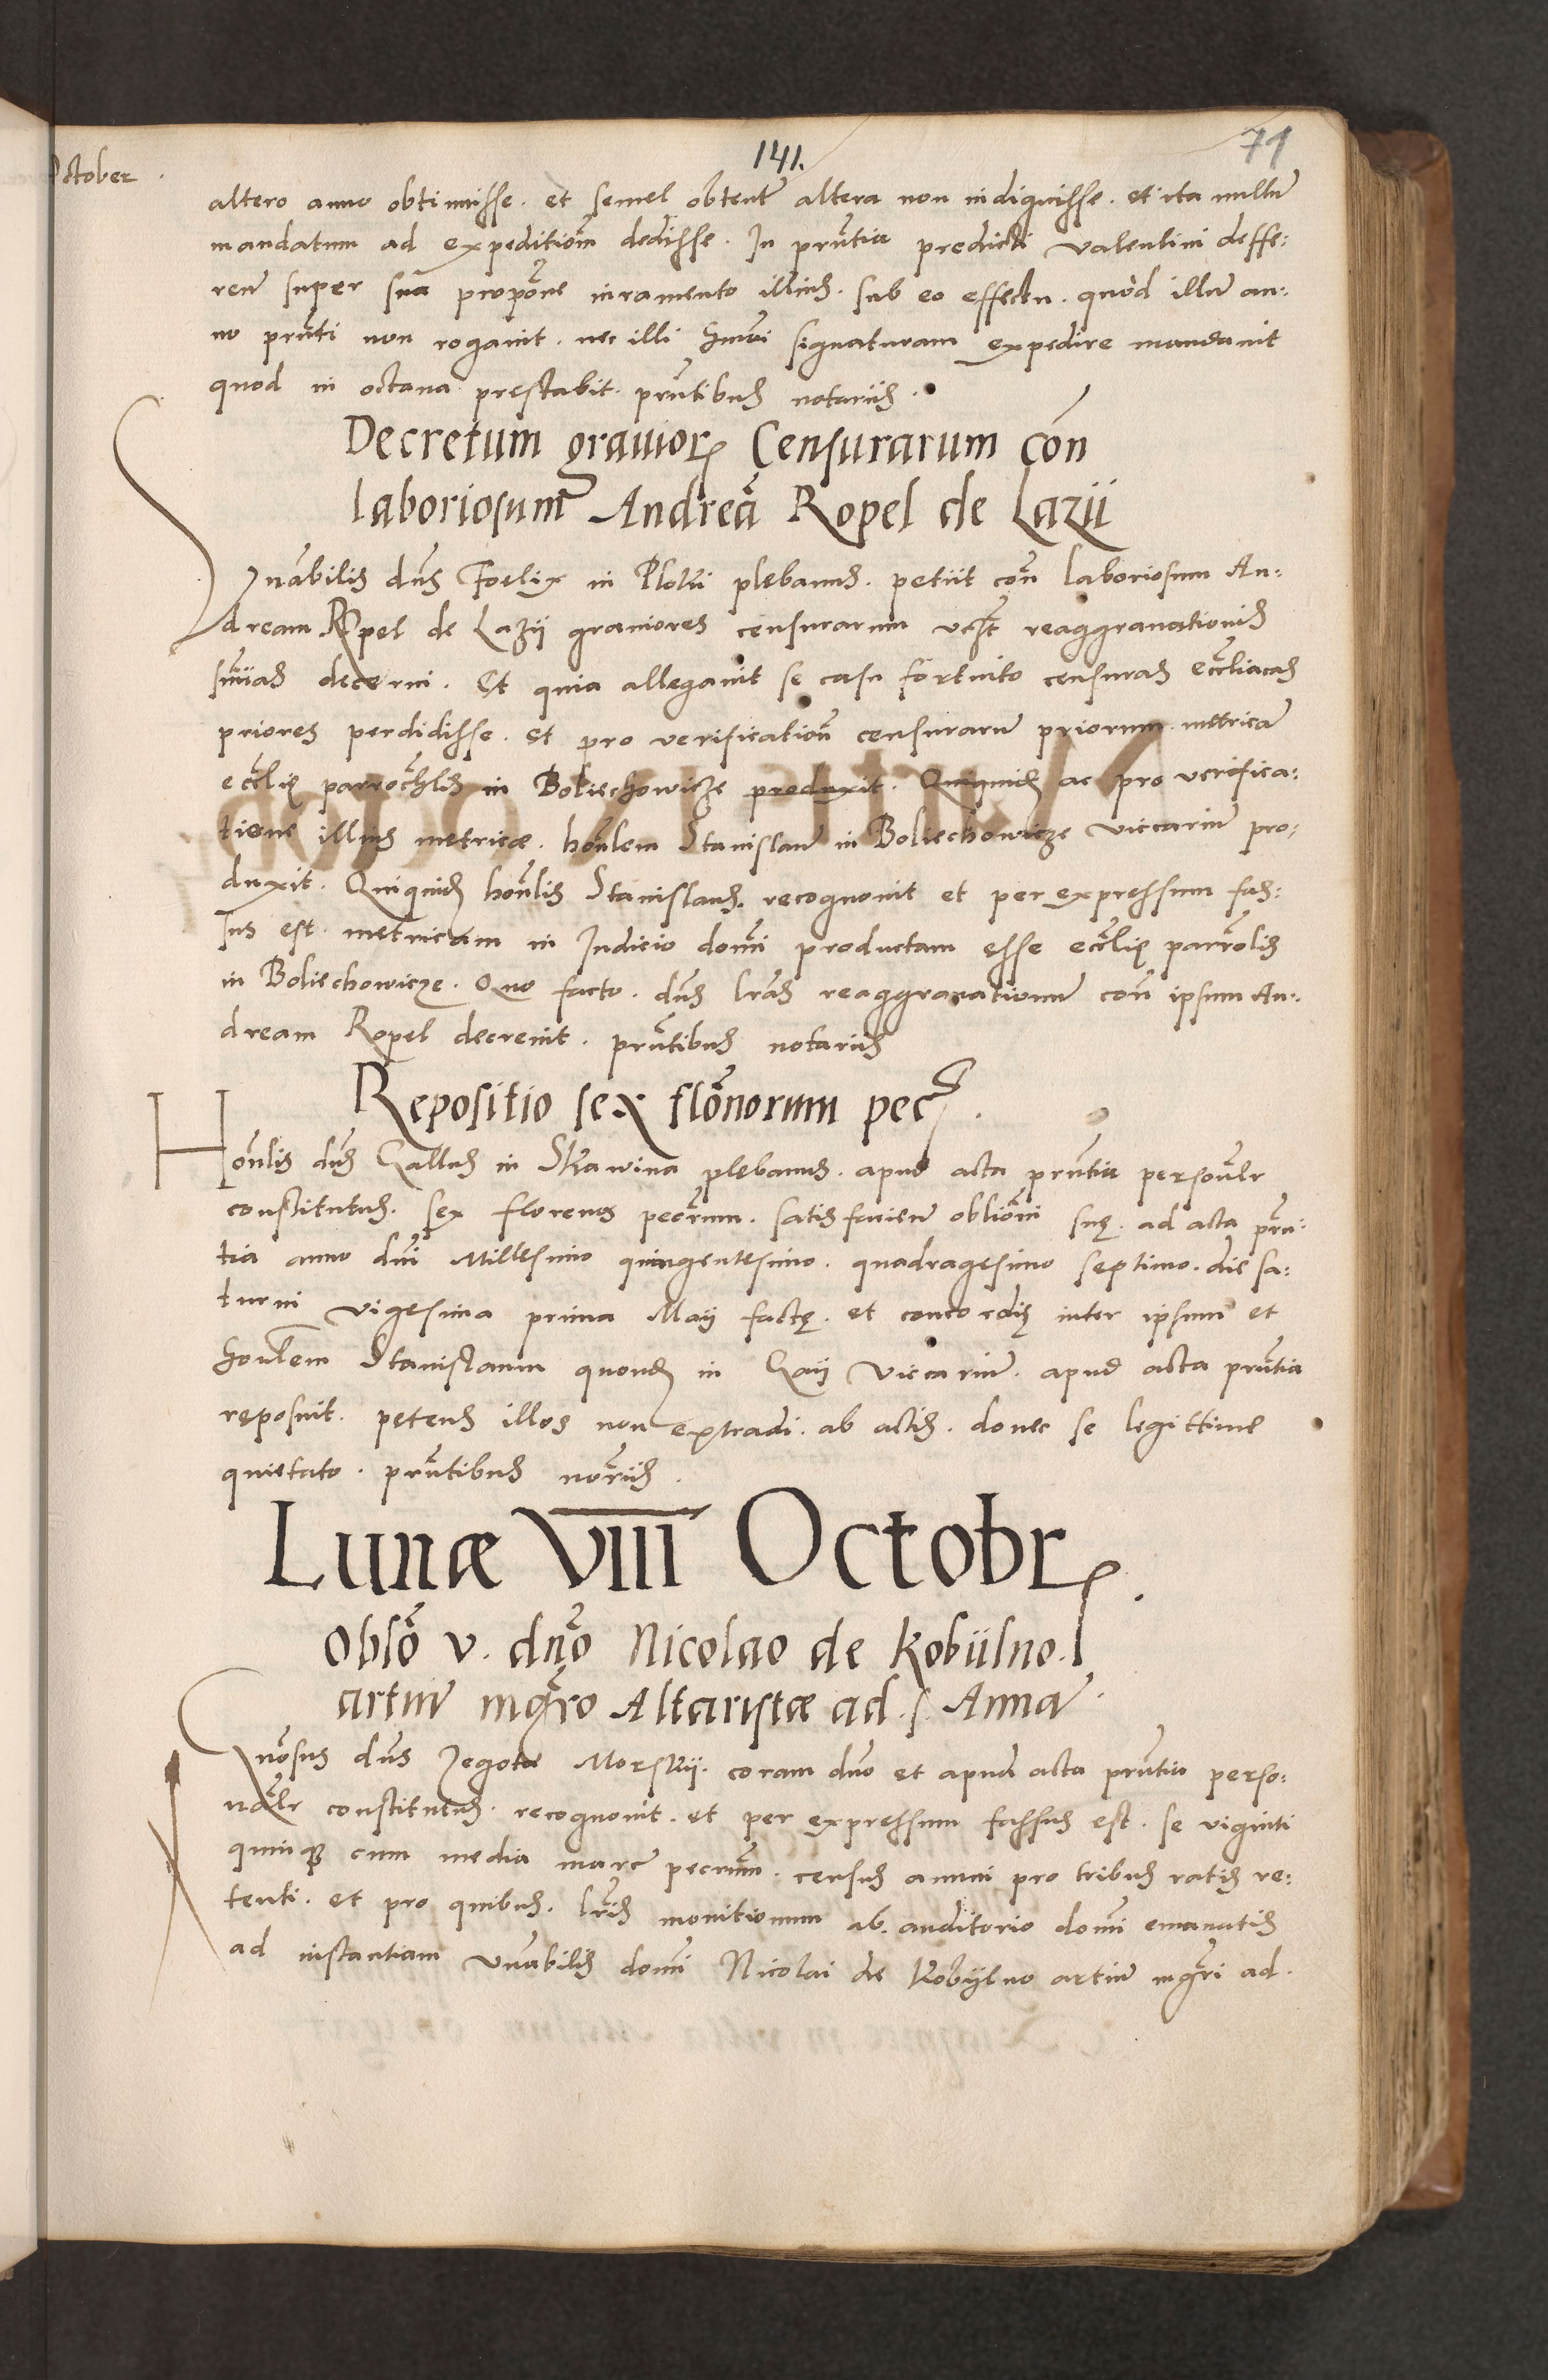 141.
71
October.
altero anno obtinuisse. et semel obtentu altera non indiguisse. et ita nullu
mandatum ad expeditiom dedisse. In pruntia predicti Valentini deffe:
ren super sua propone iuramento illius. sub eo effectu. quod illu an:
no prnti non rogavit. nec illi hmoi signaturam expedire mandavit
quod in octava prestabit. pruntibus notariis.
Decretum gravior Censurarum con
laboriosum Andrea Ropel de Lazii
Vnabilis dns Foelix in Plotki plebanus. petiit con laboriosum An:
dream Ropel de Lazij graviores censurarum vclt reaggravationis
snias decerni. Et quia allegavit se casu fortuito censuras eccliacas
priores perdidisse. et pro verification censuraru priorum metrica
ecclię parrochlis in Boliechowicze produxit. Quiquid ac pro verifica:
tione illius metricæ. honlem Stanislau in Boliechowicze viccariu pro:
duxit. Quiquid honlis Stanislaus. recognovit et per expressum fas:
sus est. metricam in Iudicio domi productam esse ecclię parrolis
in Boliechowicze. Quo facto. dns lras reaggravationum con ipsum An:
dream Ropel decrevit. pruntibus notariis
Repositio sex flonorum pec.
Honlis dns Gallus in Skawina plebanus. apud acta pruntia personlr
constitutus. sex florenos pecrum. satisfacien obliomi suę. ad acta prn:
tia anno dni Millesimo quingentesimo. quadragesimo septimo. die sa:
turni vigesima prima Maij factę. et concordię inter ipsum et
honlem Stanislaum quond in Gaij viccariu. apud acta pruntia
reposuit. petens illos non extradi. ab actis. donec se legittime
quietato. pruntibus noriis.
Lunæ VIII Octobr.
Obslo v. dno Nicolao de Kobiilno.
artiu mgro Altaristæ ad. s. Anna.
Gnosus dns Zegota Morskij. coram dno et apud acta pruntia perso:
nalr constitutus. recognovit. et per expressum fassus est. se viginti
quinq cum media marc pecrum. census annui pro tribus ratis re:
tenti. et pro quibus. lris monitionum ab. auditorio domi emanatis
ad instantiam vnabilis domi Nicolai de Kobijlno artiu mgri ad.